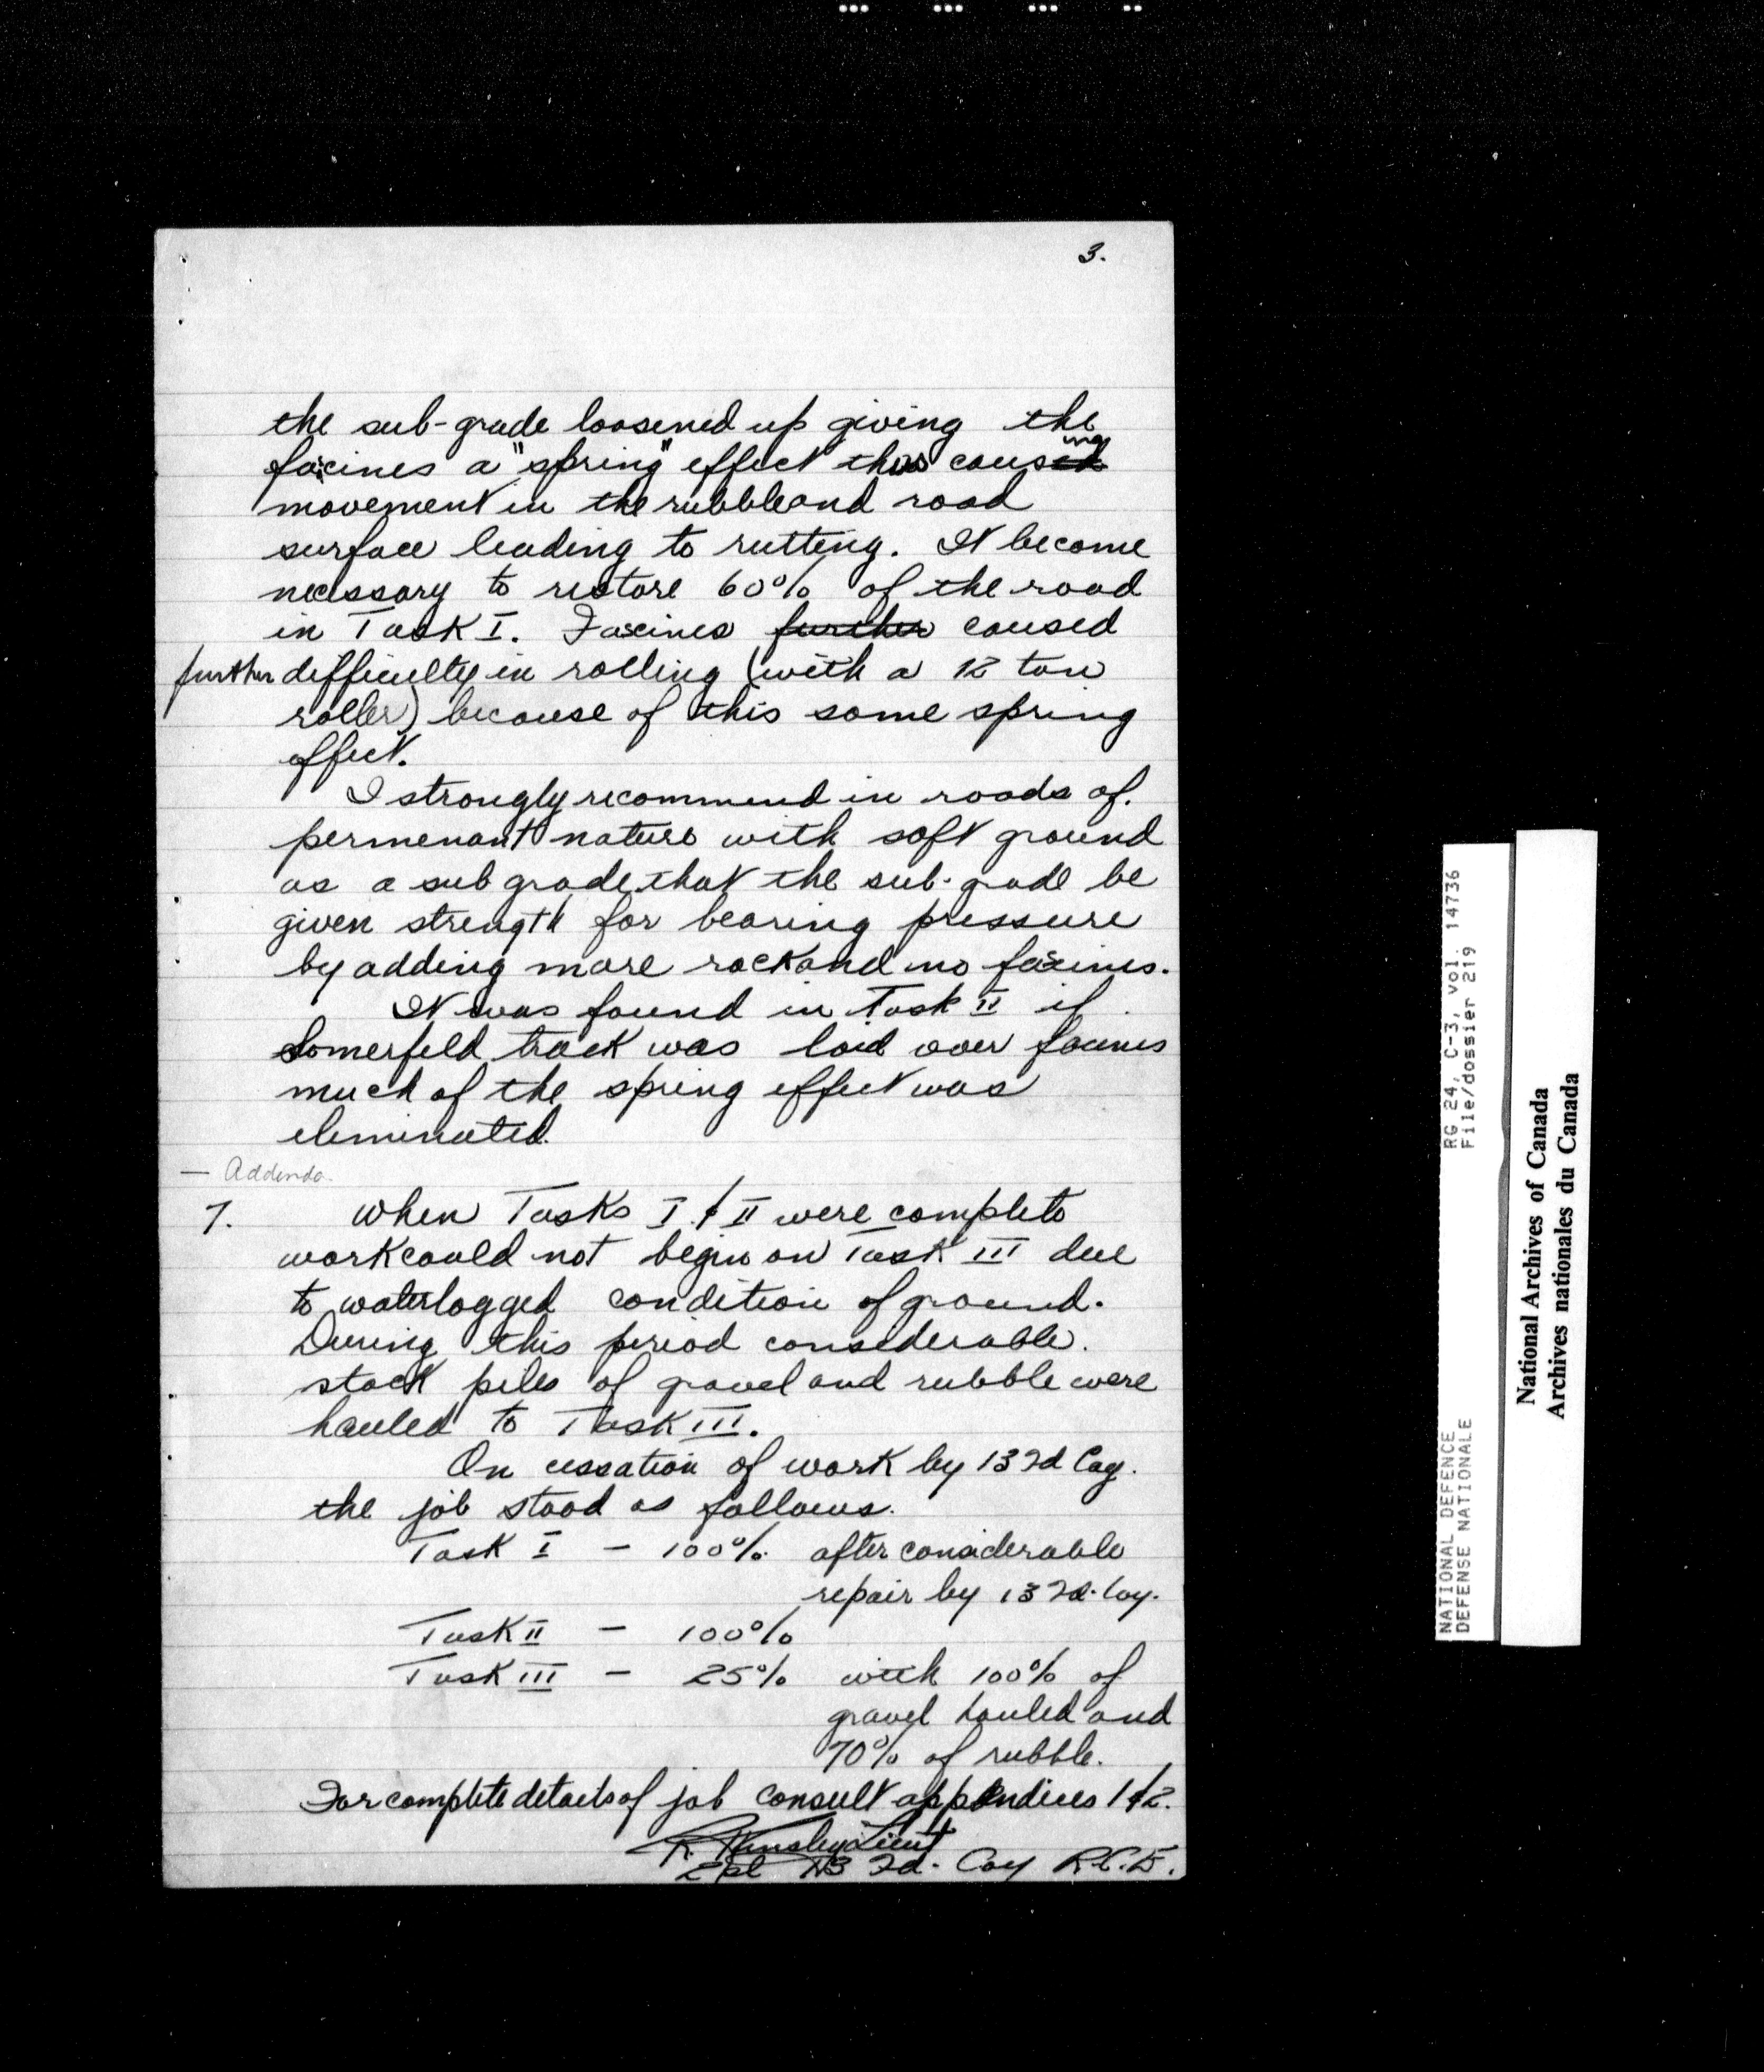 3.
the sub-grade loosened up giving the
facines a "spring" effect thus causeding
movement in the rubble and road
surface leading to rutting. It become
necessary to restore 60% of the road
in Task I. Fascines further caused
further difficulty in rolling (with a 12 ton
roller) because of this same spring
effect.
I strongly recommend in roads of
permenant nature with soft ground
as a sub grade that the sub-grade be
given strength for bearing pressure
by adding more rock and no fascines.
It was found in Task II if
Somerfeld track was laid over facines
much of the spring effect was
eliminated.
— Addenda.
7. When Tasks I & II were complete
work could not begin on Task III due
to waterlogged condition of ground.
During this period considerable
stock piles of gravel and rubble were
hauled to Task III.
On cessation of work by 13 Fd Coy.
the job stood as follows.
Task I – 100% after considerable
repair by 13 Fd. Coy.
Task II – 100%
Task III – 25% with 100% of
gravel hauled and
70% of rubble.
For complete details of job consult appendices 1 & 2.
Lieut
2 pl 13 Fd. Coy R.C.E.
NATIONAL DEFENCE RG 24, C-3, vol. 14736
DEFENSE NATIONALE File/dossier 219
National Archives of Canada
Archives nationales du Canada